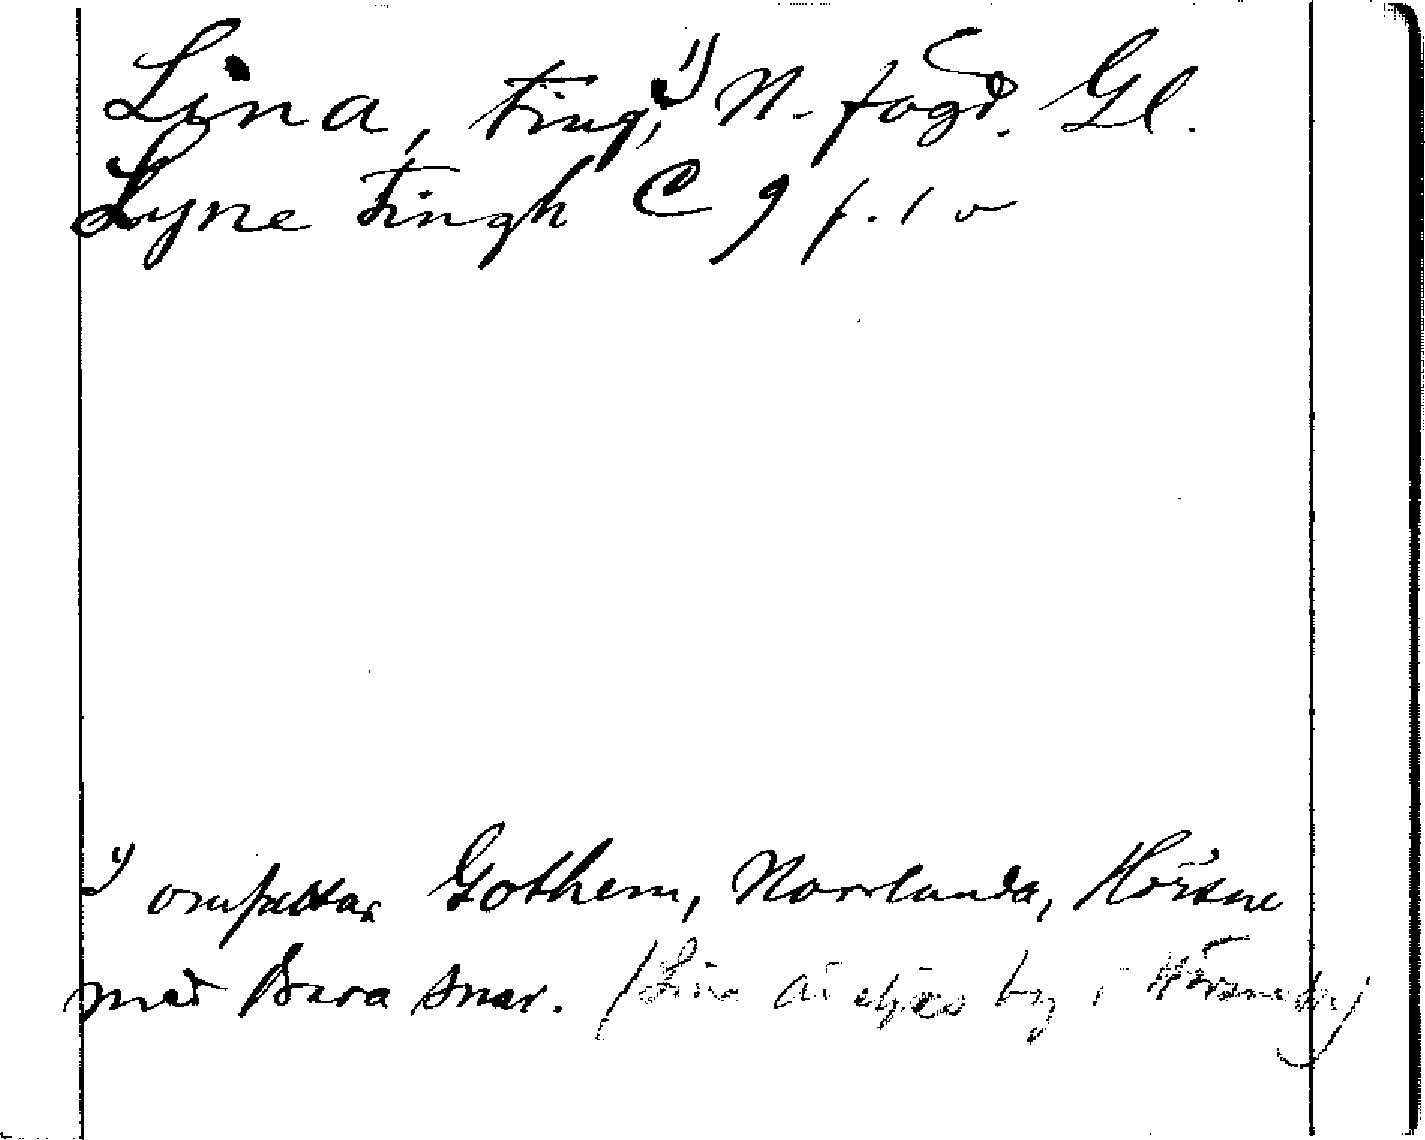 Lina, ting,¹) N. fögd. Gl.
Lyne tingh C 9 f. 1 v
¹) omfattar Gothem, Norrlanda, Hörsne
med Bara snar. (Lina är by i Hörsne